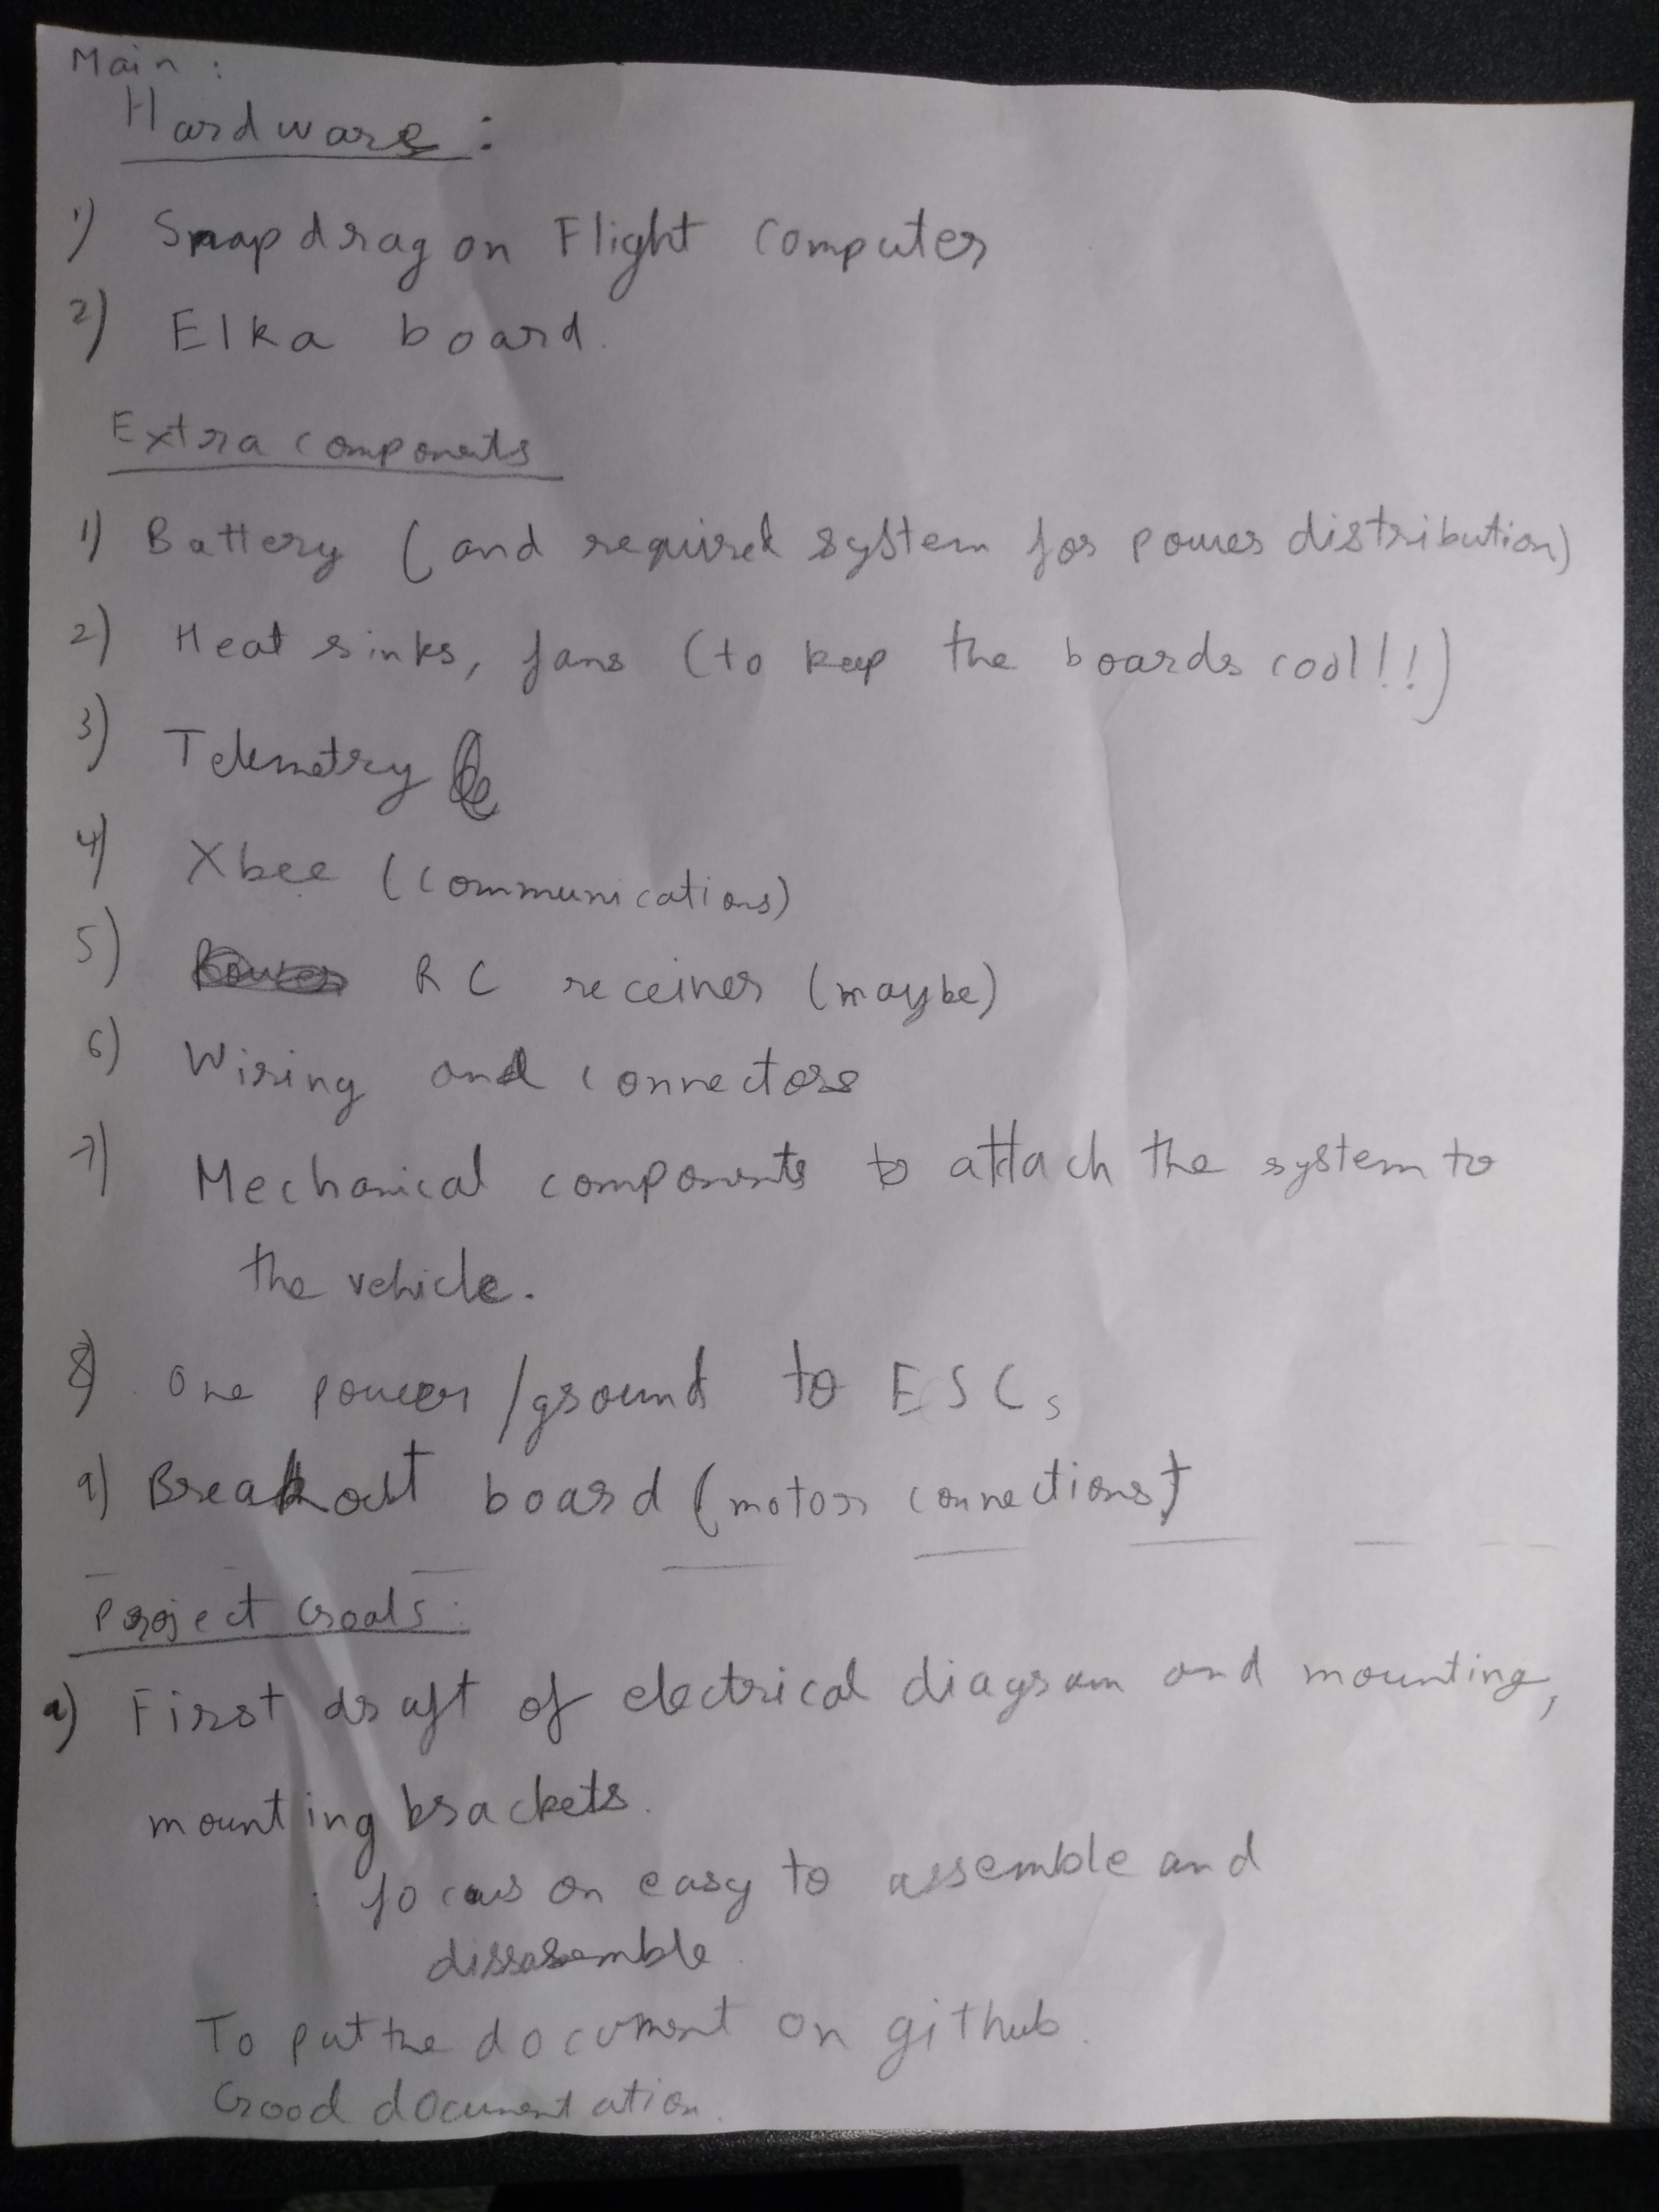 Main :
Hardware :
1) Snapdragon Flight Computer
2) Elka board.
Extra components
1) Battery (and required system for power distribution)
2) Heat sinks, fans (to keep the boards cool!!)
3) Telemetry
4) Xbee (communications)
5) RC receiver (maybe)
6) Wiring and connectors
7) Mechanical components to attach the system to
the vehicle.
8) One power/ground to ESCs
9) Breakout board (motor connections)
Project Goals:
a) First draft of electrical diagram and mounting,
mounting brackets.
: focus on easy to assemble and
dissasemble.
To put the document on github.
Good documentation.